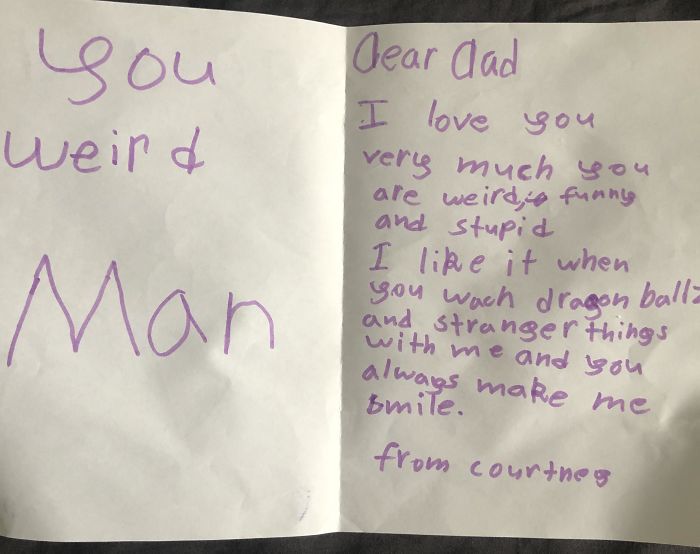 you
weird
Man
Dear Dad
I love you
very much you
are weird, funny
and stupid
I like it when
you wach dragon ballz
and stranger things
with me and you
always make me
smile.
from courtney